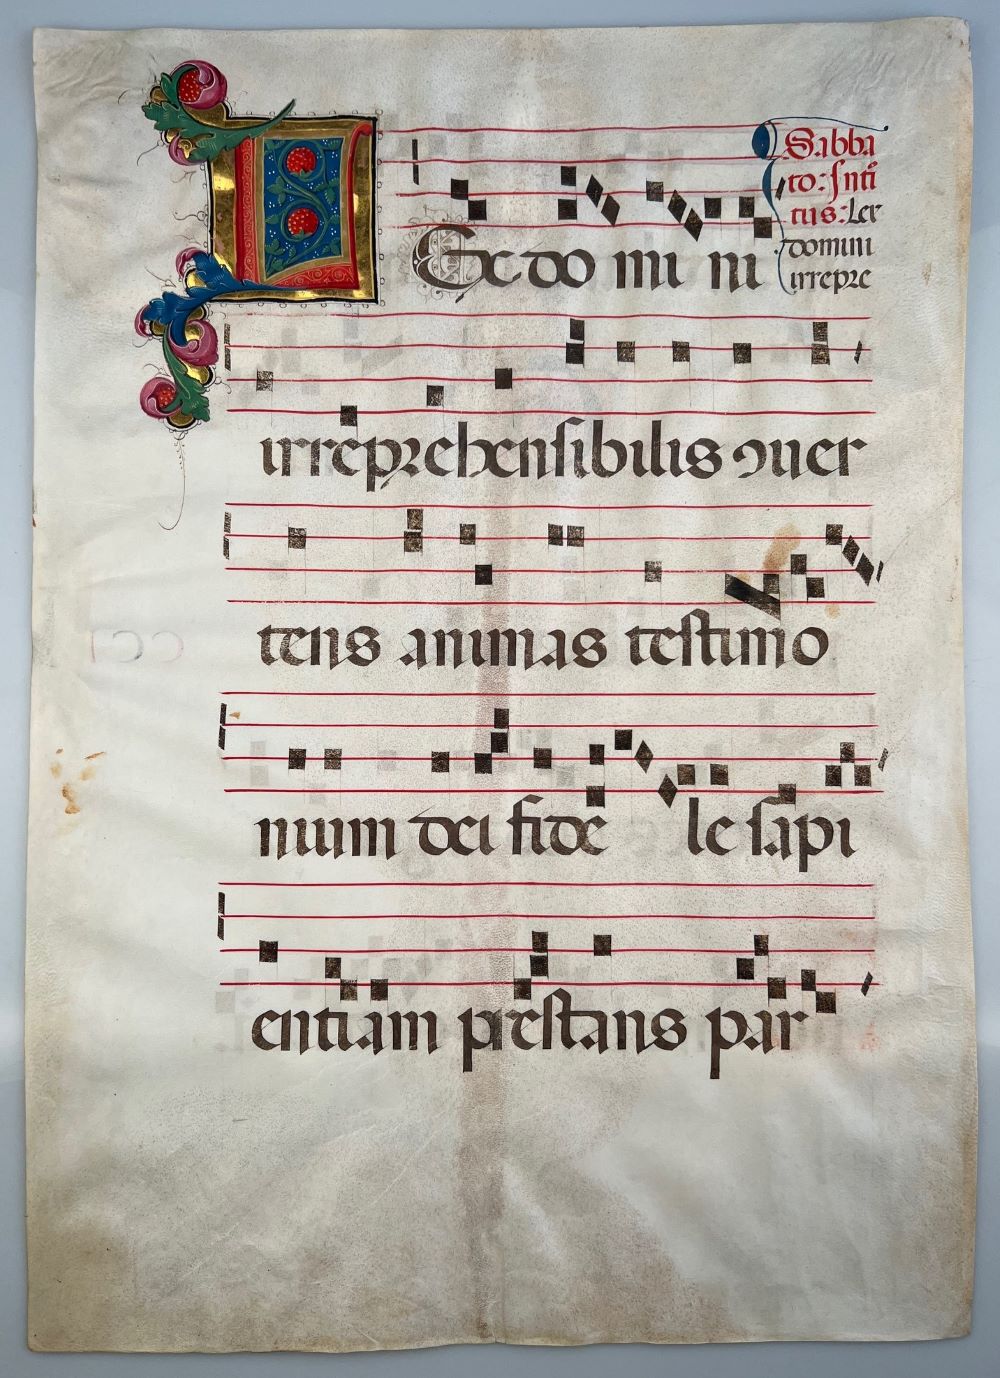 Sabba
to: Inti
tus: Lex
domini
irrepre
LEx do mi ni
irreprehensibilis conuer
tens animas testimo
nium dei fide le sapi
entiam prestans par